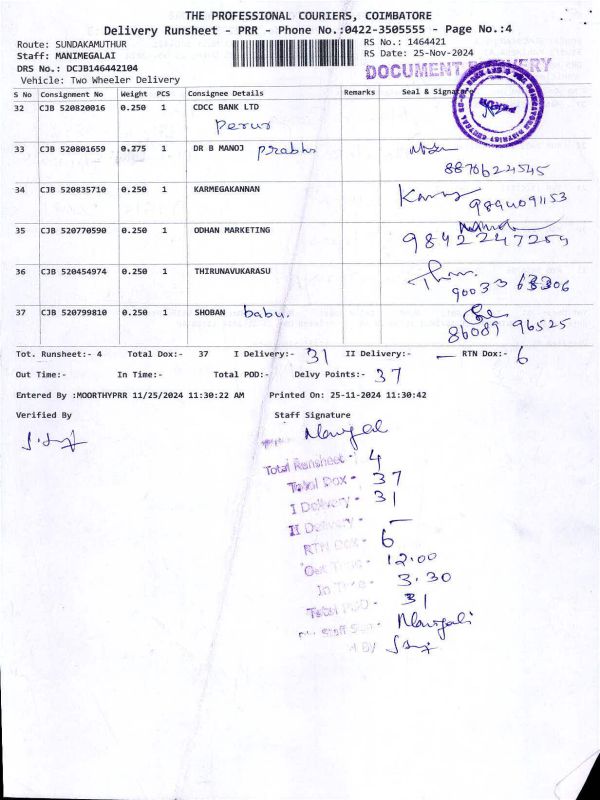 THE PROFESSIONAL COURIERS, COIMBATORE
Delivery Runsheet - PRR - Phone No.:0422-3505555 - Page No.:4
Route: SUNDAKAMUTHUR
RS No.: 1464421
Staff: MANIMEGALAI
RS Date: 25-Nov-2024
DRS No.: DCJB146442104
DOCUMENT DELIVERY
Vehicle: Two Wheeler Delivery
S No Consignment No Weight PCS Consignee Details Remarks Seal & Signature
32 CJB 520820016 0.250 1 CDCC BANK LTD
Perur
33 CJB 520801659 0.275 1 DR B MANOJ prabhu
8870624545
34 CJB 520835710 0.250 1 KARMEGAKANNAN
9894091153
35 CJB 520770590 0.250 1 ODHAN MARKETING
9842247254
36 CJB 520454974 0.250 1 THIRUNAVUKARASU
90033 63306
37 CJB 520799810 0.250 1 SHOBAN babu.
86089 96525
Tot. Runsheet:- 4 Total Dox:- 37 I Delivery:- 31 II Delivery:- — RTN Dox:- 6
Out Time:- In Time:- Total POD:- Delvy Points:- 37
Entered By :MOORTHYPRR 11/25/2024 11:30:22 AM Printed On: 25-11-2024 11:30:42
Verified By Staff Signature
Total Runsheet - 4
Total Dox - 37
I Delivery - 31
II Delivery - —
RTN Dox - 6
Out Time - 12.00
In Time - 3.30
Total POD - 31
Staff Sign -
By